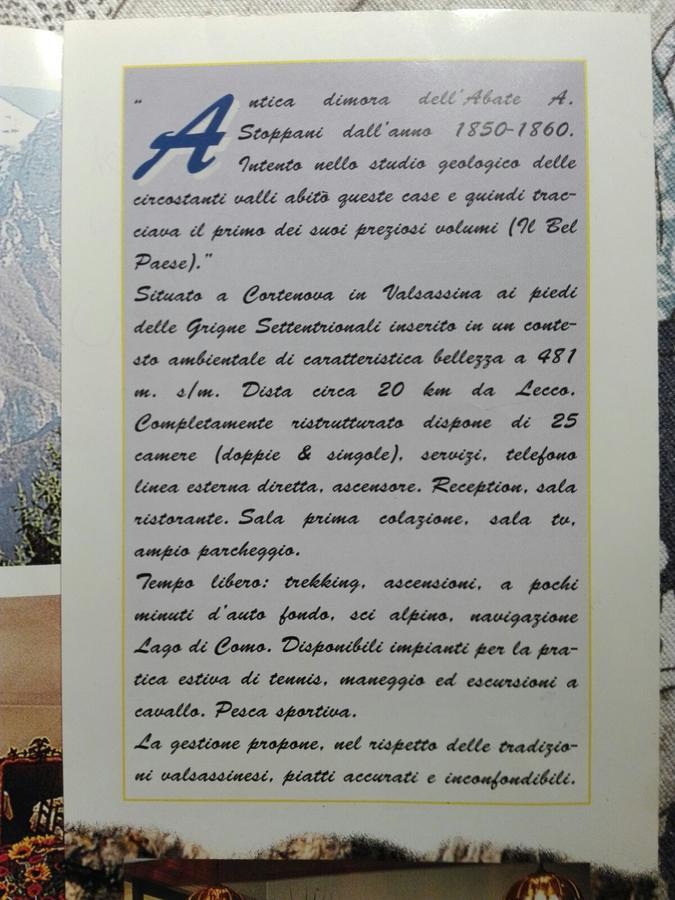 "Antica dimora dell'Abate A.
Stoppani dall'anno 1850-1860.
Intento nello studio geologico delle
circostanti valli abitò queste case e quindi trac-
ciava il primo dei suoi preziosi volumi (Il Bel
Paese)."
Situato a Cortenova in Valsassina ai piedi
delle Grigne Settentrionali inserito in un conte-
sto ambientale di caratteristica bellezza a 481
m. s/m. Dista circa 20 km da Lecco.
Completamente ristrutturato dispone di 25
camere (doppie & singole), servizi, telefono
linea esterna diretta, ascensore. Reception, sala
ristorante. Sala prima colazione, sala tv,
ampio parcheggio.
Tempo libero: trekking, ascensioni, a pochi
minuti d'auto fondo, sci alpino, navigazione
Lago di Como. Disponibili impianti per la pra-
tica estiva di tennis, maneggio ed escursioni a
cavallo. Pesca sportiva.
La gestione propone, nel rispetto delle tradizio-
ni valsassinesi, piatti accurati e inconfondibili.